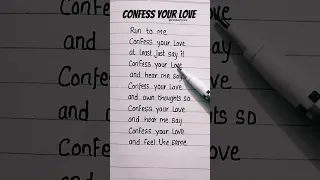 CONFESS YOUR LOVE
Run to me
Confess your love
at least just say it
Confess your love
and hear me say
Confess your love
and own thoughts so
Confess your love
and hear me say
Confess your love
and feel the same